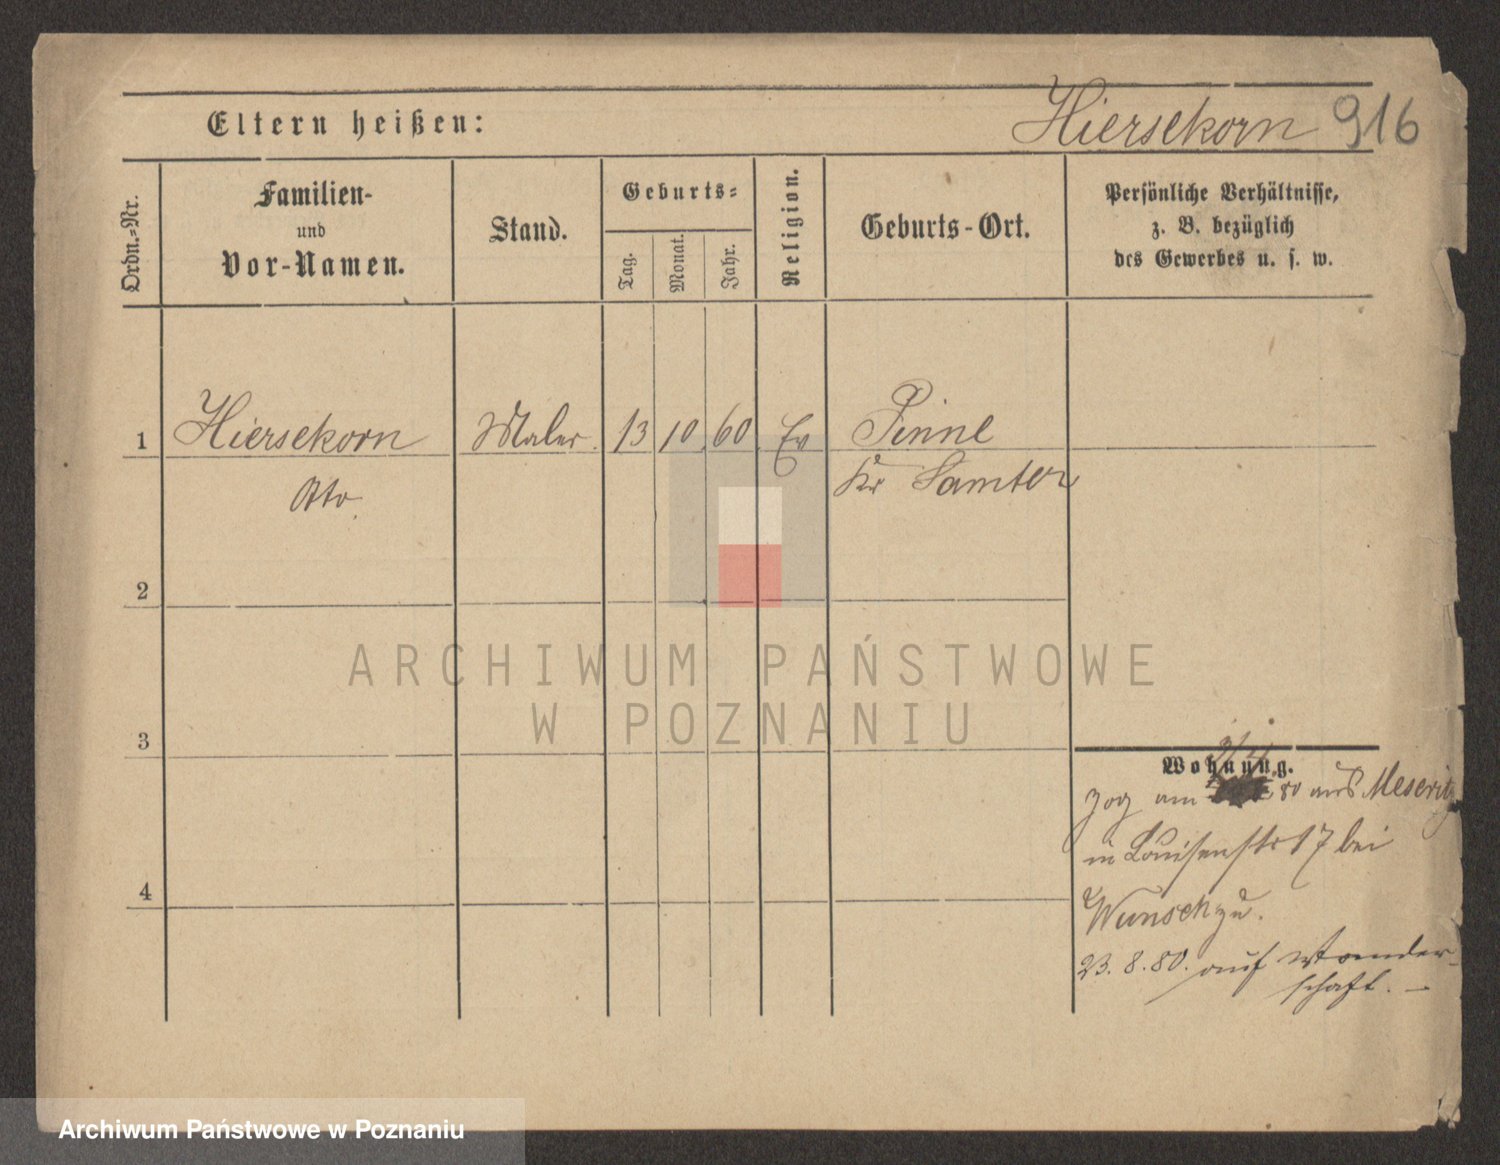 Eltern heißen:
Hiersekorn 916
Ordn.-Nr.
Familien-
und
Vor-Namen.
Stand.
Geburts-
Tag.
Monat.
Jahr.
Religion.
Geburts-Ort.
Persönliche Verhältnisse,
z. B. bezüglich
des Gewerbes u. s. w.
1 Hiersekorn Maler. 13 10 60 Ev Pinne
Otto Kr Samter
2
3
4
ARCHIWUM PAŃSTWOWE
W POZNANIU
Wohnung.
zog am 80 aus Meseritz
in Louisenstr 17 bei
Wunsch zu.
23. 8. 80. auf Wander-
schaft. —
Archiwum Państwowe w Poznaniu